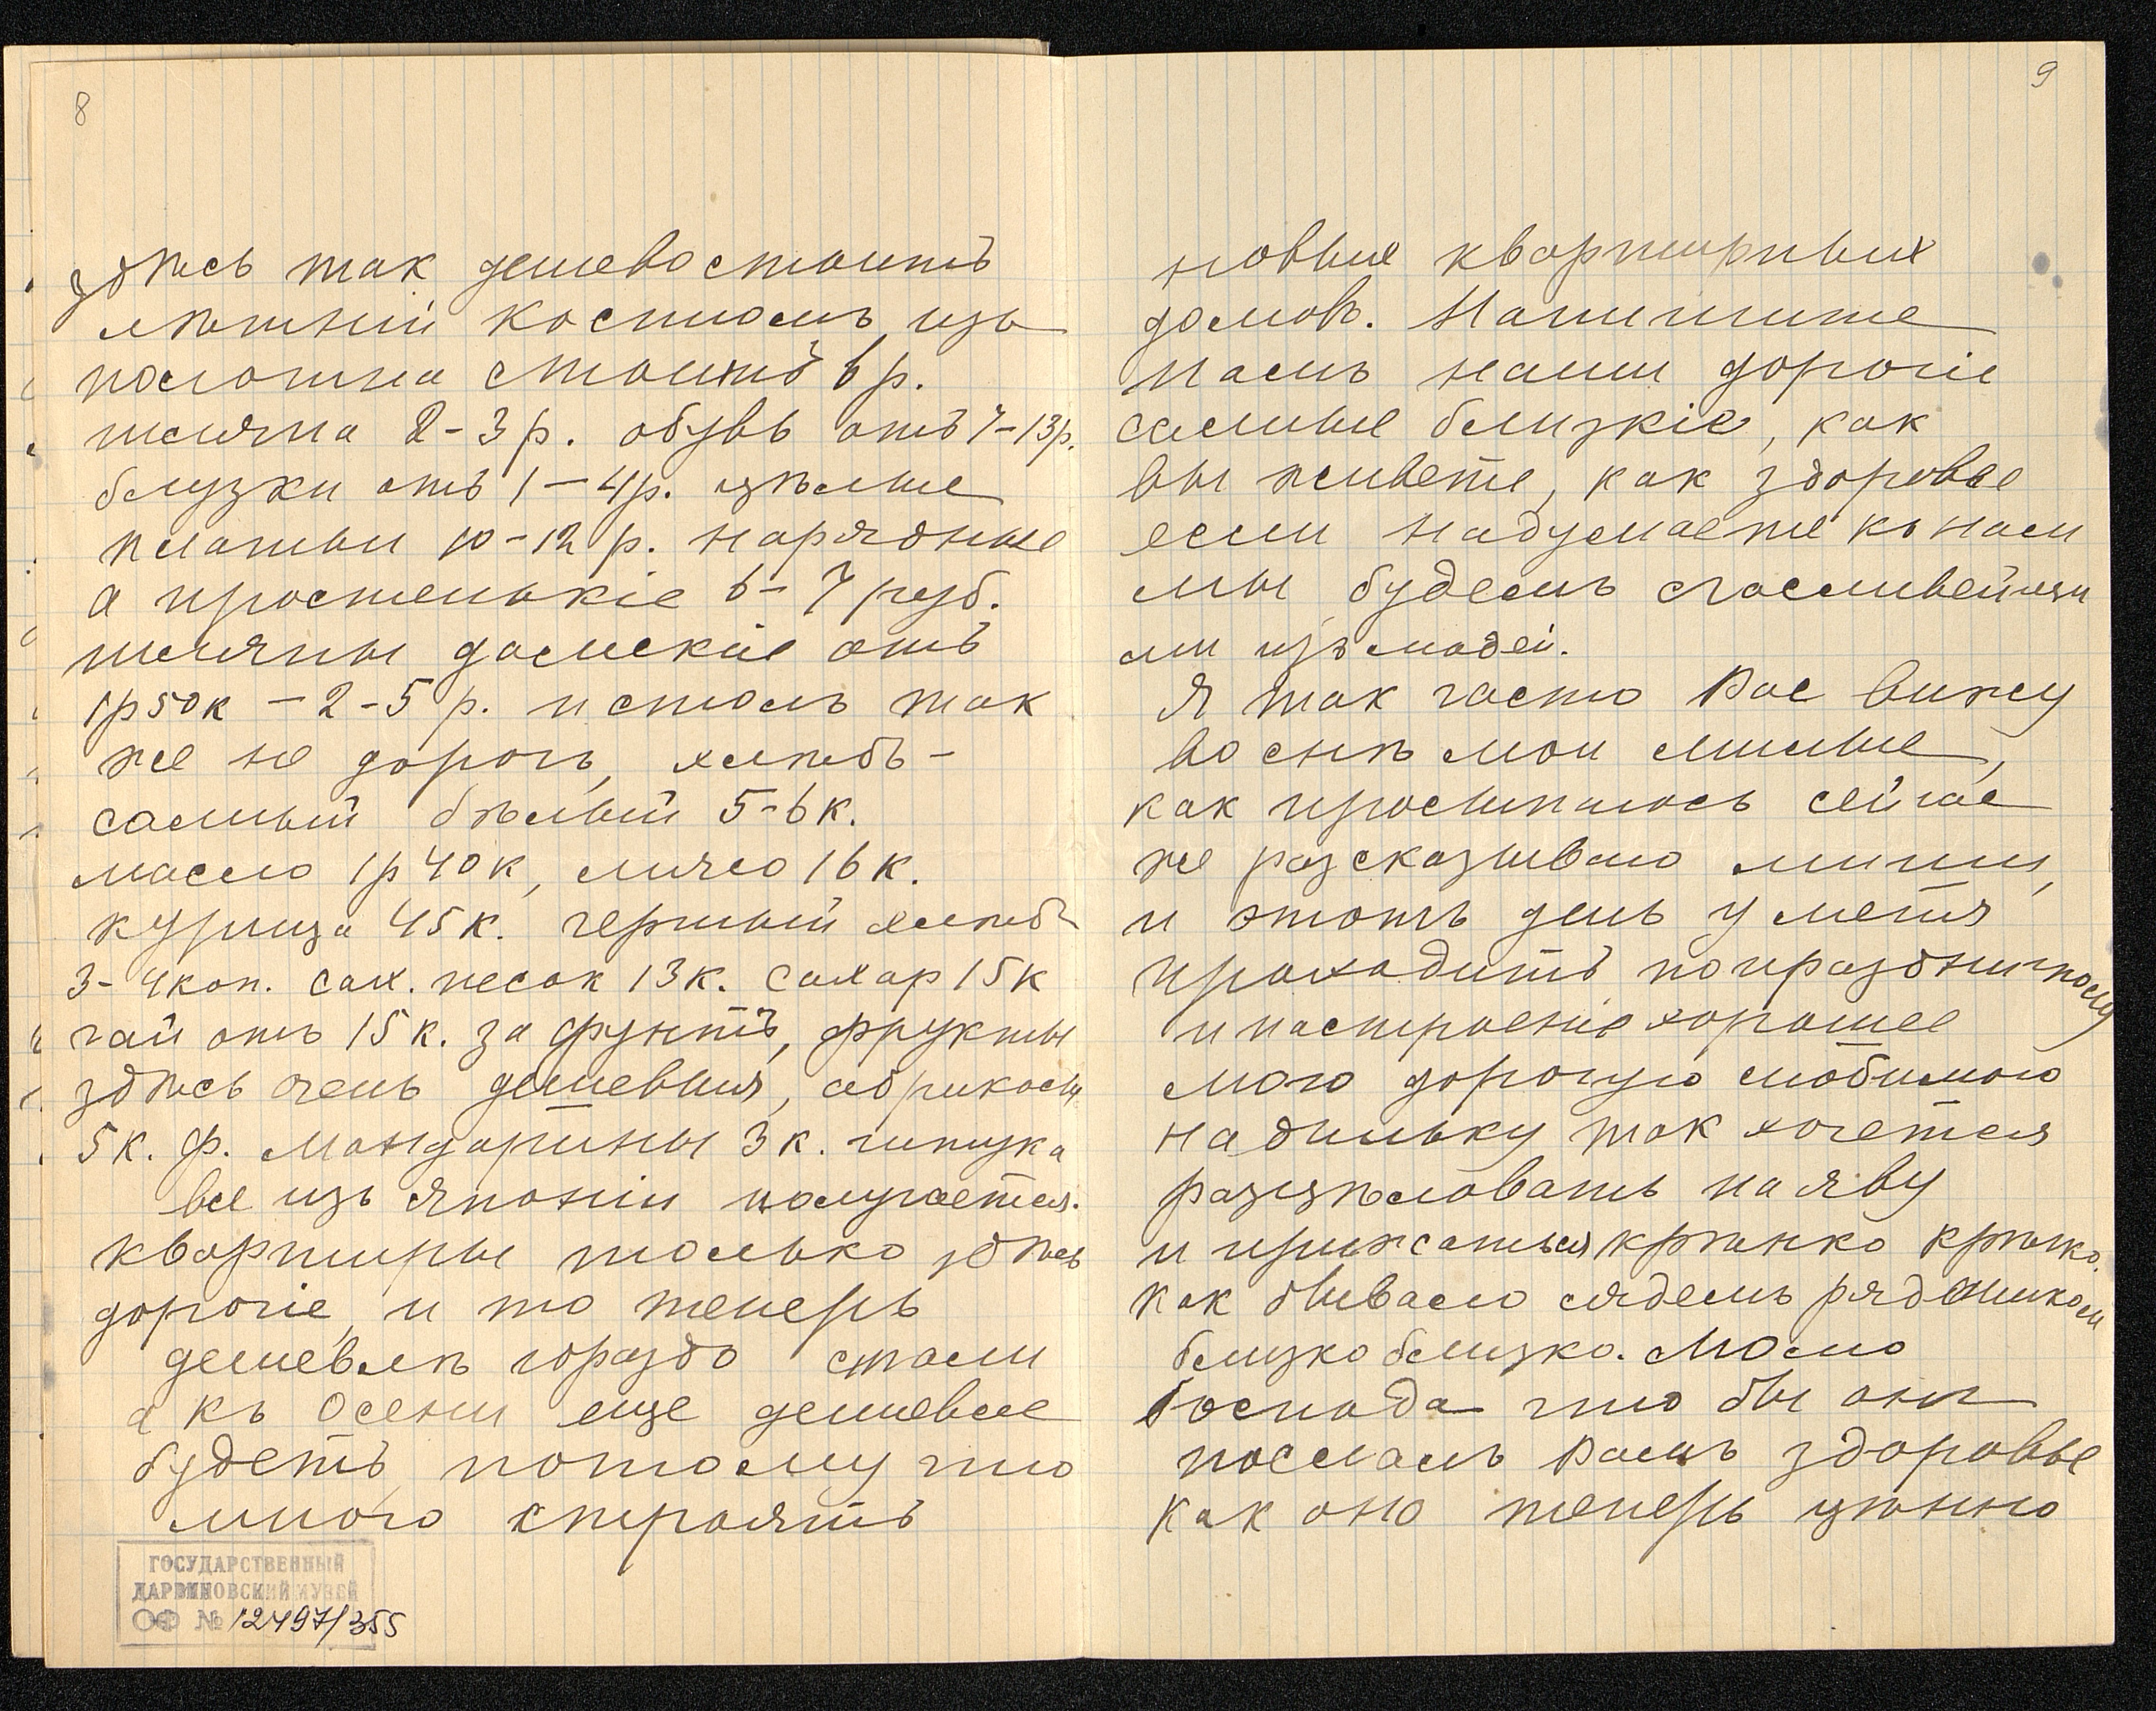 8
здѣсь так дешево стоитъ
лѣтній костюмъ изъ
полотна стоитъ 6 р.
шляпа 2-3 р. обувь отъ 7-13 р.
блузки отъ 1-4 р. цѣлые
платьи 10-12 р. нарядные
а простенькіе 6-7 руб.
шляпы дамскіе отъ
1р 50к - 2-5 р. и столъ так
же не дорогъ, хлѣбъ -
самый бѣлый 5-6 к.
масло 1р 40к, мясо 16 к.
курица 45 к. черный хлѣбъ
3-4 коп. сах. песок 13 к. сахар 15 к
чай отъ 15 к. за фунтъ, фрукты
здѣсь очень дешевыя, абрикосы
5 к. ф. мандарины 3 к. штука
все изъ японіи получается.
квартиры только здѣсь
дорогіе, и то теперь
дешевлѣ гораздо стали
а къ осени еще дешевле
будетъ, потому что
много строятъ
ГОСУДАРСТВЕННЫЙ
ДАРВИНОВСКИЙ МУЗЕЙ
ОФ № 12497/355
9
новых квартирных
домовъ. Напишите
намъ наши дорогіе
самые близкіе, как
вы живете, как здоровье
если надумаете къ нам
мы будемъ счасливейши
ми изъ людей.
Я так часто Вас вижу
во снѣ мои милые,
как просыпаюсь сейчас
же разсказываю мишѣ,
и этотъ день у меня
проходитъ по праздничному
и настроеніе хорошее
мою дорогую любимою
надильку так хочется
разцѣловать на яву
и прижаться крѣпко крѣпко.
как бывало сядемъ рядышком
близко близко. Молю
Господа что бы он
послалъ Вамъ здоровье
как оно теперь цѣнно